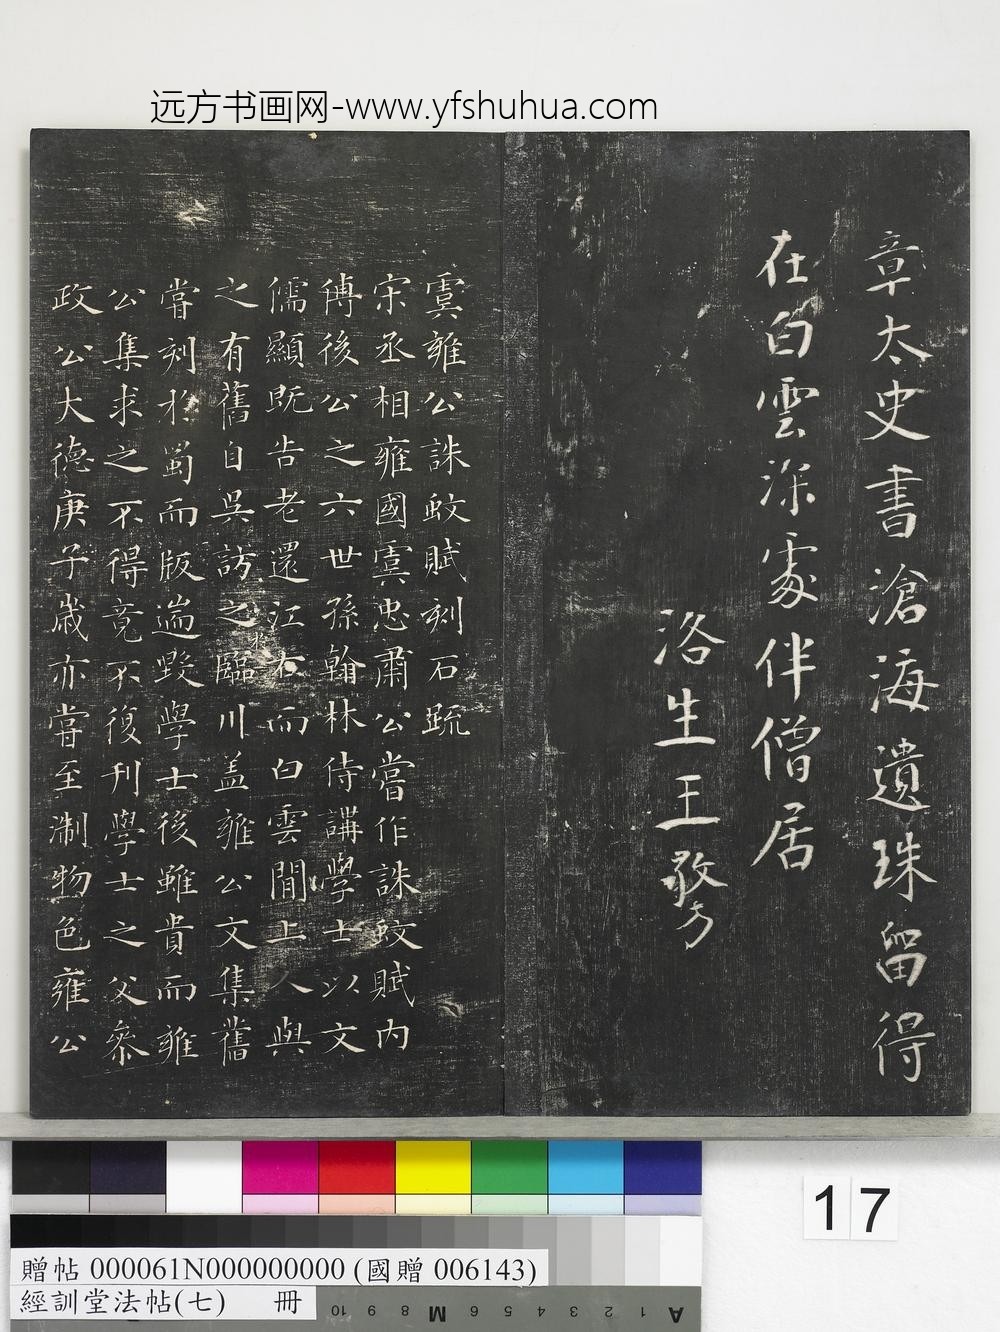 远方书画网-www.yfshuhua.com
章太史書滄海遺珠留得
在白雲深處伴僧居
洛生王務
虞雍公誅蚊賦刻石疏
宋丞相雍國虞忠肅公嘗作誅蚊賦内
傅後公之六世孫翰林侍講學士以文
儒顯既告老還江右而白雲閒上人與
之有舊自吳訪之臨川盖雍公文集舊
嘗刻於蜀而版崩毀學士後雖貴而雍
公集求之不得竟不復刊學士之父參
政公大德庚子歲亦嘗至淛物色雍公
17
贈帖 000061N000000000 (國贈 006143)
經訓堂法帖(七) 冊
10 9 8 M 6 5 4 3 2 1 A